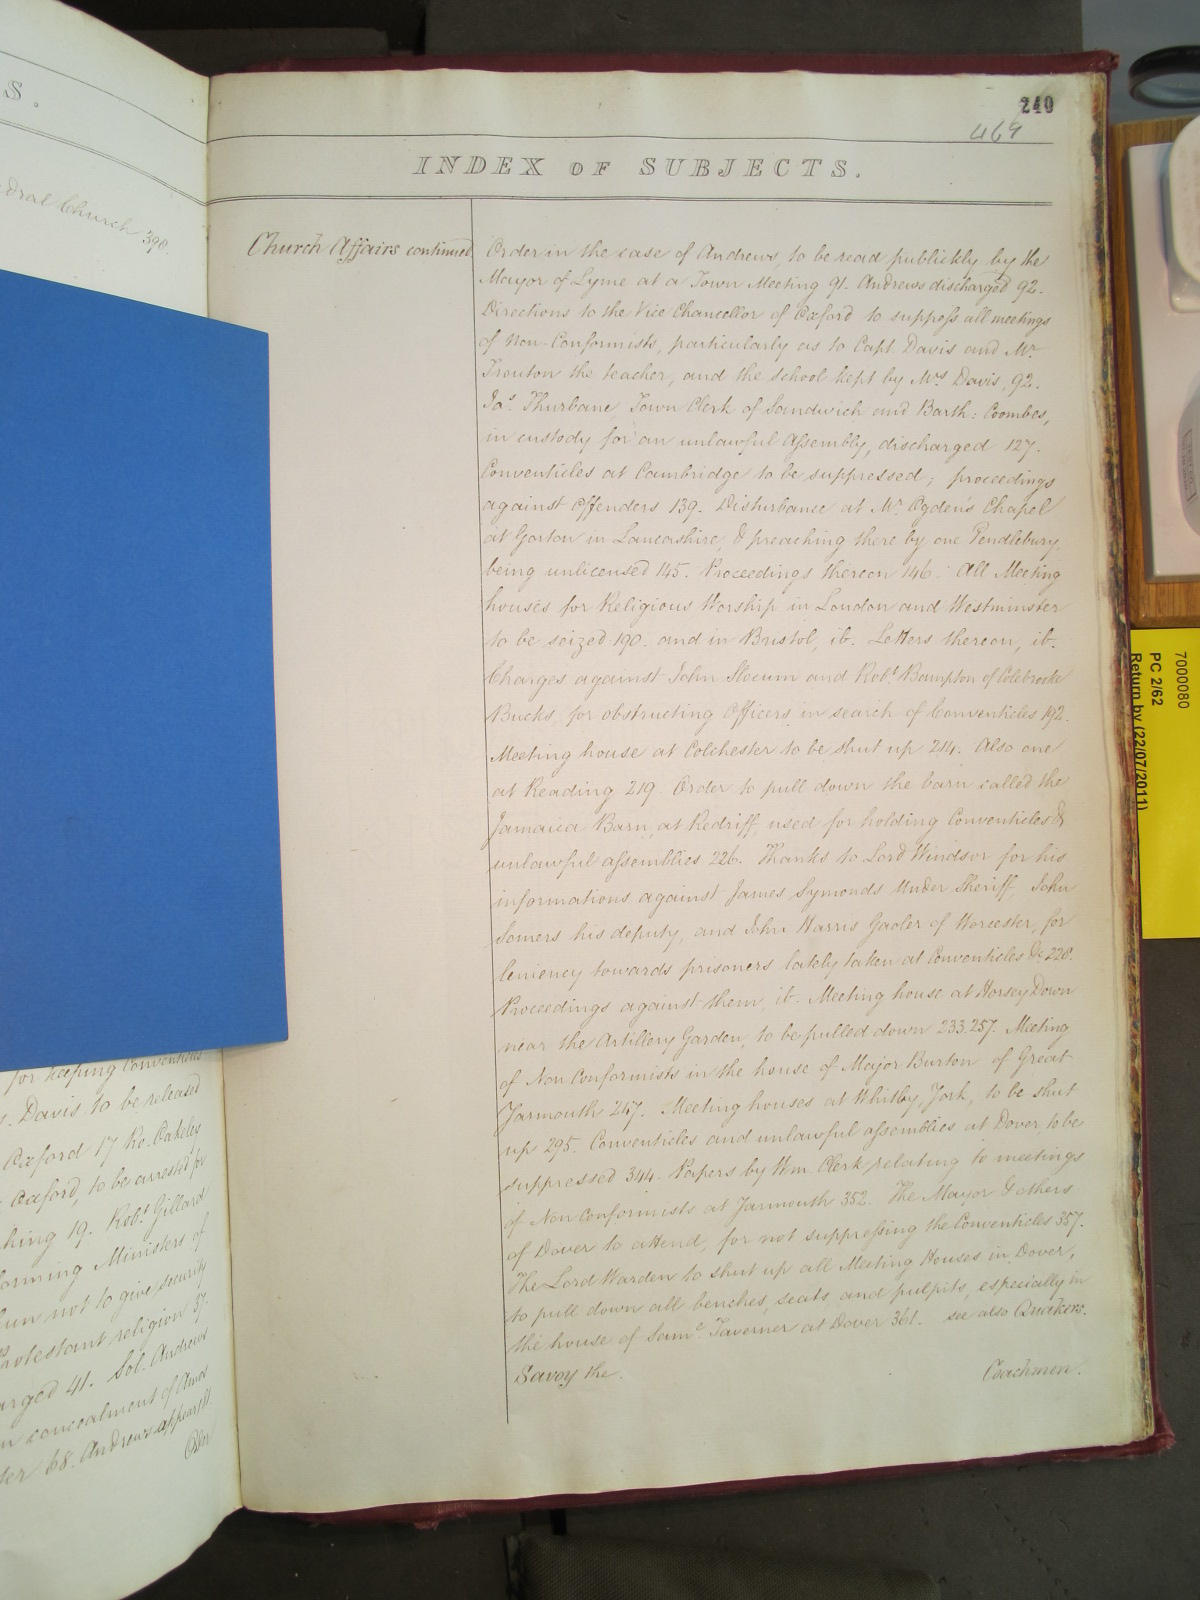 S.
dral Church 398.
for keeping Conventicles
Davis to be released
Oxford 17 Re. Oakeley
Oxford, to be arrested for
hing 19. Robt. Gillard
forming Ministers of
not to give security
Protestant religion 37.
arged 41. Sol. Andrews
concealment of
68. Andrews appears ib.
240
469
INDEX OF SUBJECTS.
Church Affairs continued
Order in the case of Andrews, to be read publickly by the
Mayor of Lyme at a Town Meeting 91. Andrews discharged 92.
Directions to the Vice Chancellor of Oxford to suppress all meetings
of Non-Conformists, particularly as to Capt. Davis and Mr.
Trouton the teacher, and the school kept by Mrs. Davis, 92.
Jas. Thurbane Town Clerk of Sandwich and Barth: Coombes,
in custody for an unlawful Assembly, discharged 127.
Conventicles at Cambridge to be suppressed; proceedings
against Offenders 139. Disturbance at Mr. Ogden's Chapel
at Gorton in Lancashire, & preaching there by one Pendlebury,
being unlicensed 145. Proceedings thereon 146. All Meeting
houses for Religious Worship in London and Westminster
to be seized 190. and in Bristol, ib. Letters thereon, ib.
Charges against John Slocum and Robt. Bampton of Colebrooke
Bucks, for obstructing Officers in search of Conventicles 192.
Meeting house at Colchester to be shut up 214. Also one
at Reading 219. Order to pull down the barn called the
Jamaica Barn, at Redriff, used for holding Conventicles &
unlawful assemblies 226. Thanks to Lord Windsor for his
informations against James Symonds Under Sheriff, John
Somers his deputy, and John Harris Gaoler of Worcester, for
leniency towards prisoners lately taken at Conventicles &c 228.
Proceedings against them, ib. Meeting house at Horsey Down
near the Artillery Garden, to be pulled down 233. 257. Meeting
of Non Conformists in the house of Major Burton of Great
Yarmouth 247. Meeting houses at Whitby, York, to be shut
up 295. Conventicles and unlawful assemblies at Dover to be
suppressed 344. Papers by Wm. Clerk relating to meetings
of Non Conformists at Yarmouth 352. The Mayor & others
of Dover to attend, for not suppressing the Conventicles 357.
The Lord Warden to shut up all Meeting Houses in Dover,
to pull down all benches, seats, and pulpits, especially in
the house of Saml. Taverner at Dover 361. see also Quakers.
Savoy the.
Coachmen.
7000080
PC 2/62
Return by (22/07/2011)